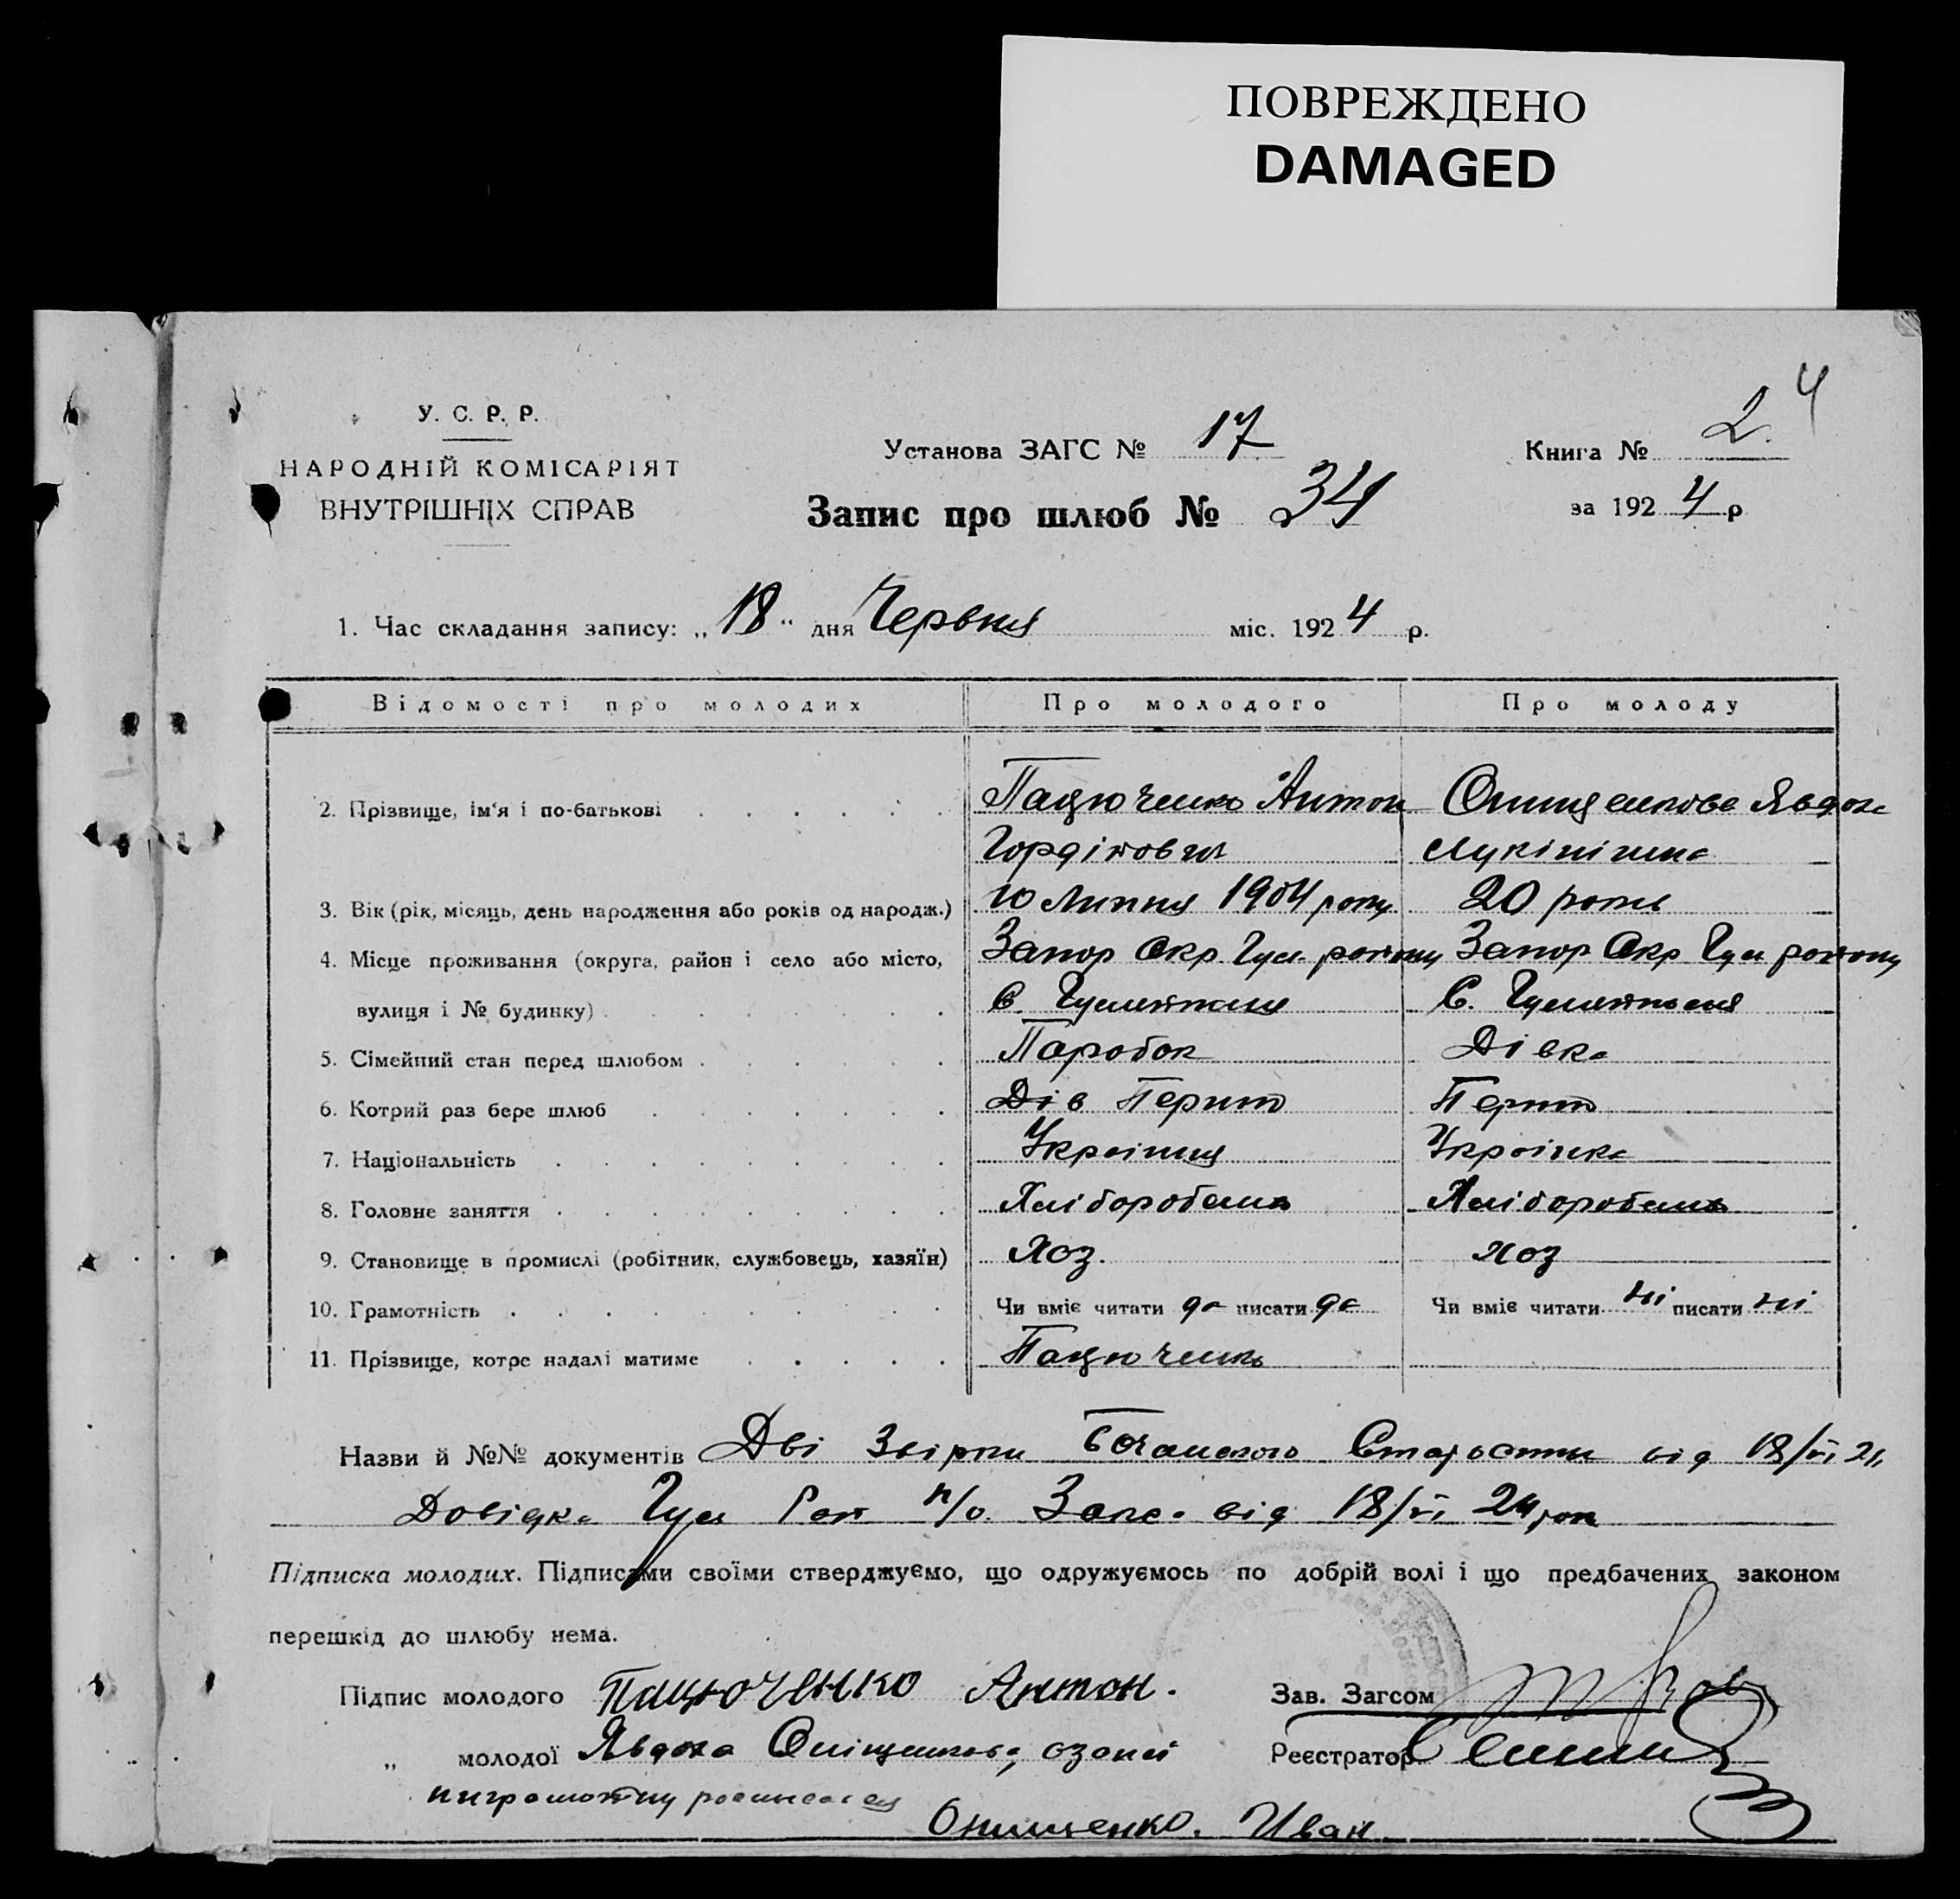 ПОВРЕЖДЕНО
DAMAGED
4
У. С. Р. Р.
НАРОДНІЙ КОМІСАРІЯТ
ВНУТРІШНІХ СПРАВ
Установа ЗАГС № 17
Книга № 2
Запис про шлюб № 34
за 1924 р
1. Час складання запису: „18“ дня Червня міс. 1924 р.
Відомості про молодих Про молодого Про молоду
2. Прізвище, ім'я і по-батькові Пацюченко Антон Онищенкова Явдоха
Гордійович Лукінішна
3. Вік (рік, місяць, день народження або років од народж.) 10 Липня 1904 року 20 років
4. Місце проживання (округа, район і село або місто, Запор Окр. Гул. району Запор Окр Гул району
вулиця і № будинку) С. С.
5. Сімейний стан перед шлюбом Паробок Дівка
6. Котрий раз бере шлюб Дів Перший Перший
7. Національність Українець Українка
8. Головне заняття Хліборобська Хліборобська
9. Становище в промислі (робітник, службовець, хазяїн) Хоз. Хоз
10. Грамотність Чи вміє читати да писати да Чи вміє читати ні писати ні
11. Прізвище, котре надалі матиме Пацюченко
Назви й №№ документів Дві від 18/VI 24
Довідка Гул Рай п/о від 18/VI 24 рок
Підписка молодих. Підписами своїми стверджуємо, що одружуємось по добрій волі і що предбачених законом
перешкід до шлюбу нема.
Підпис молодого Пацюченко Антон. Зав. Загсом
„ молодої Явдоха Онищенкова, за неї Реєстратор
неграмотну росписался
Онищенко. Иван